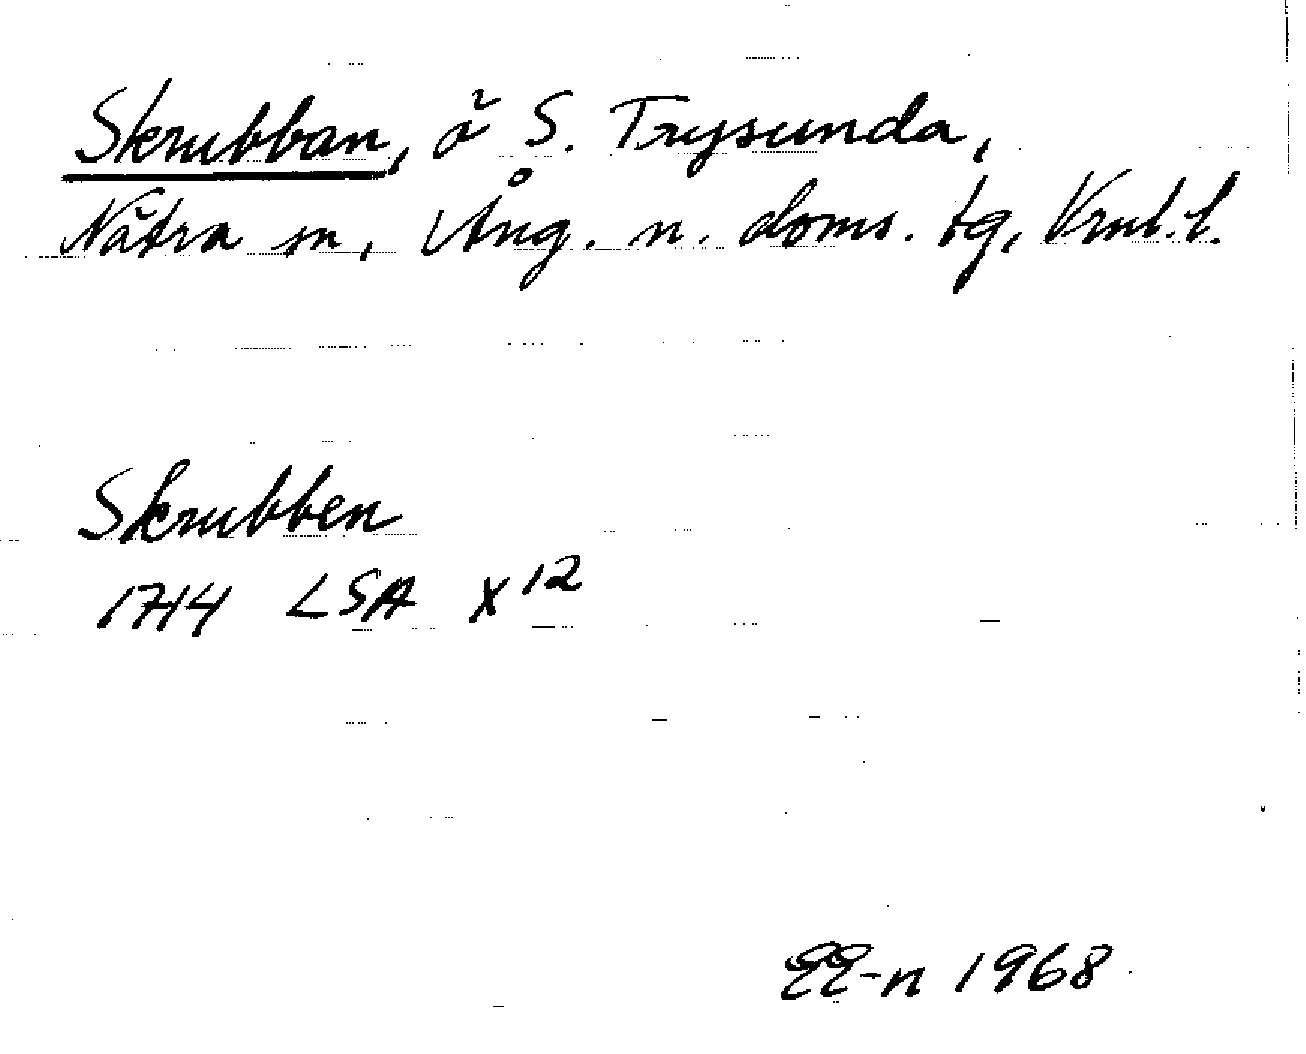 Skrubban, ö S. Trysunda,
Nätra sn, Ång. n. doms. tg, Vrnl. l.
Skrubben
1714 LSA X 12
EE-n 1968